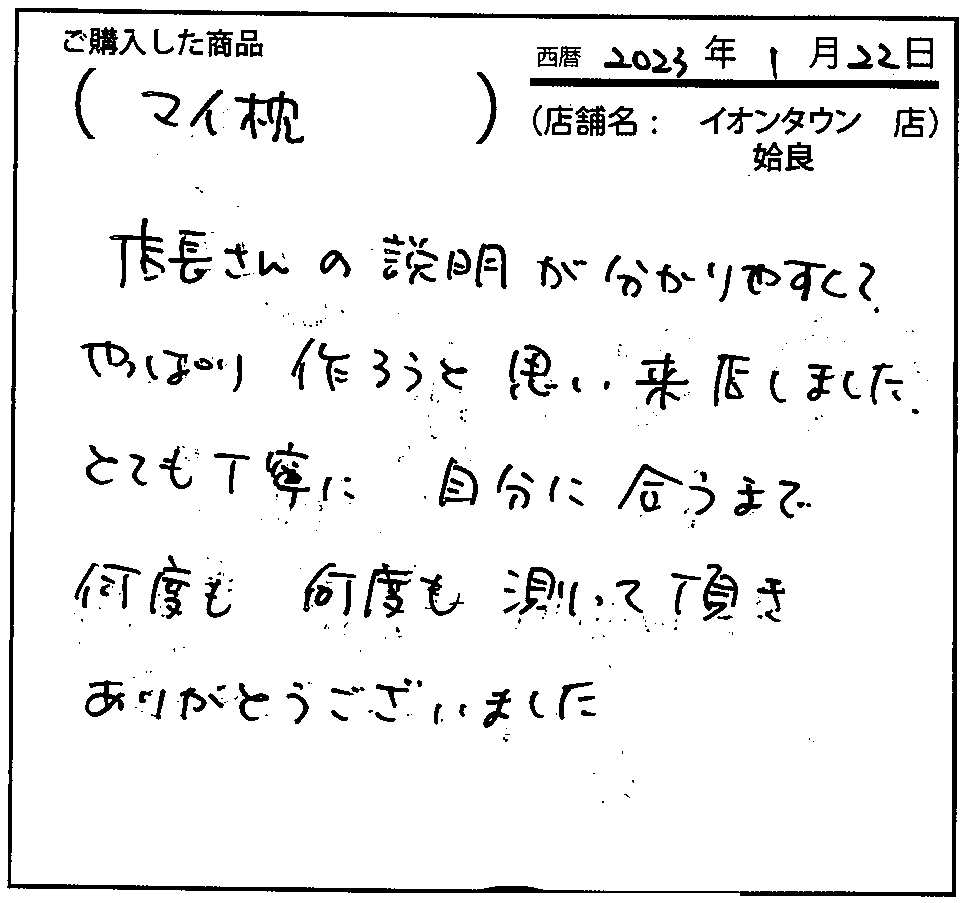 ご購入した商品
（ マイ枕 ）
西暦 2023 年 1 月 22 日
（店舗名： イオンタウン 店）
姶良
店長さんの説明が分かりやすくて、
やっぱり 作ろうと思い来店しました。
とても丁寧に 自分に合うまで
何度も 何度も 測って頂き
ありがとうございました